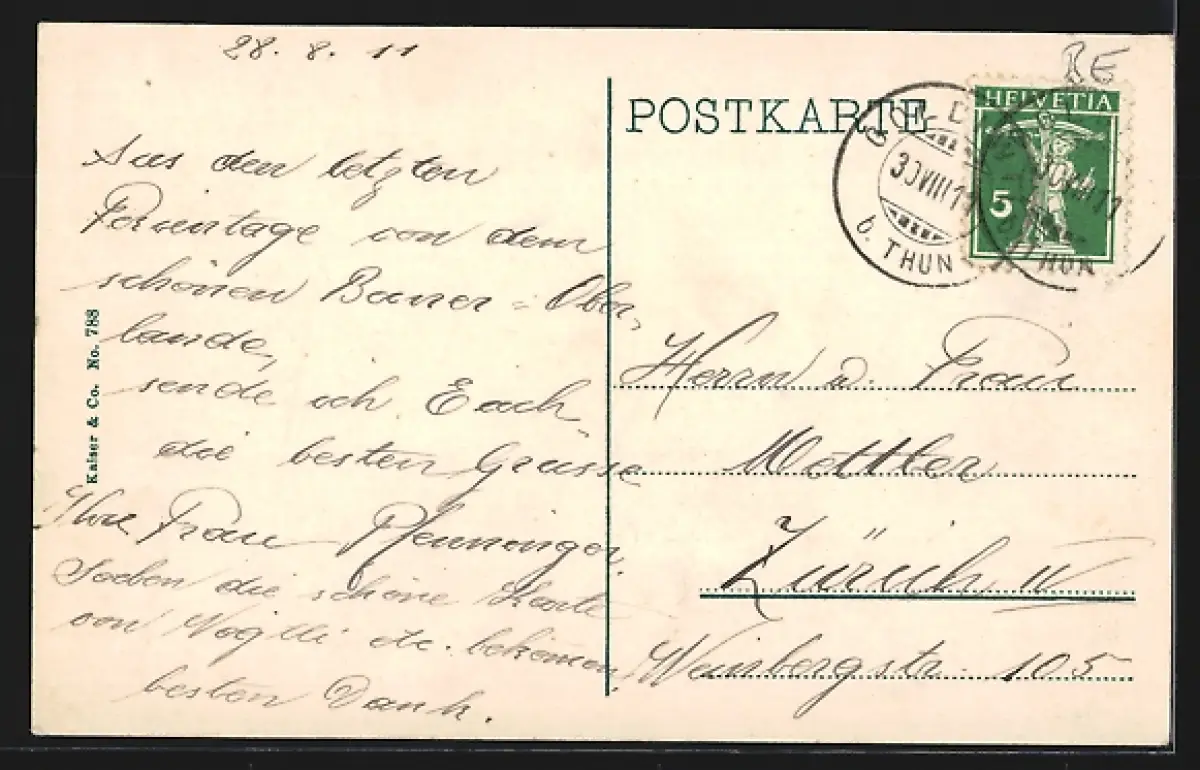 28. 8. 11
Aus den letzten
Ferientage von dem
schönen Berner-Ober-
lande,
sende ich Euch
die besten Grüsse
Ihre Frau Pfenninger.
Soeben die schöne Karte
von etc. bekommen,
besten Dank.
Kaiser & Co. No. 788
BE
POSTKARTE
HELVETIA
5
30 VIII 11
b. THUN
Herrn u. Frau
Mettler
Zürich IV
Weinbergstr. 105